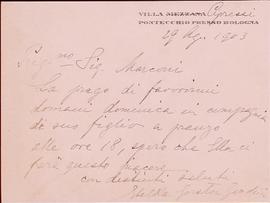 VILLA MEZZANA Cipressi
PONTECCHIO PRESSO BOLOGNA
29 Ag. 1903
Preg.mo Sig Marconi
La prego di favorirmi
domani domenica in compagnia
di suo figlio a pranzo
alle ore 18, spero che Ella ci
farà questo piacere
con distinti saluti